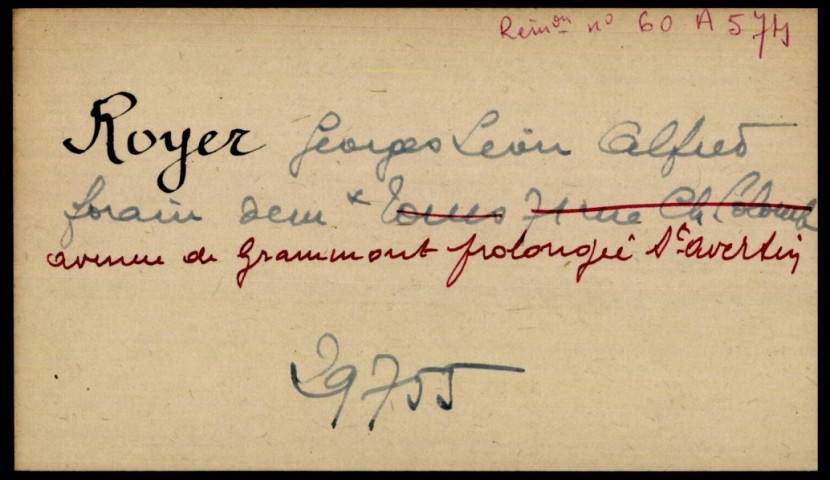 Reimon no 60 A 574
Royer Georges Léon Alfred
forain dem x Tours 71 rue Ch Colomb
avenue de Grammont prolongée St-avertin
29755